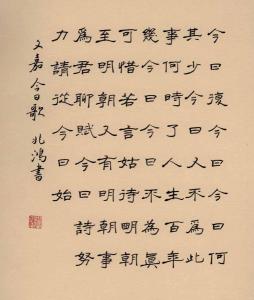 今日復今日今日何
其少今日又不為此
事何時了人生百年
幾今日今日不為真
可惜若言姑待明朝
至明朝又有明朝事
為君聊賦今日詩努
力請從今日始
文嘉今日歌 兆鴻書